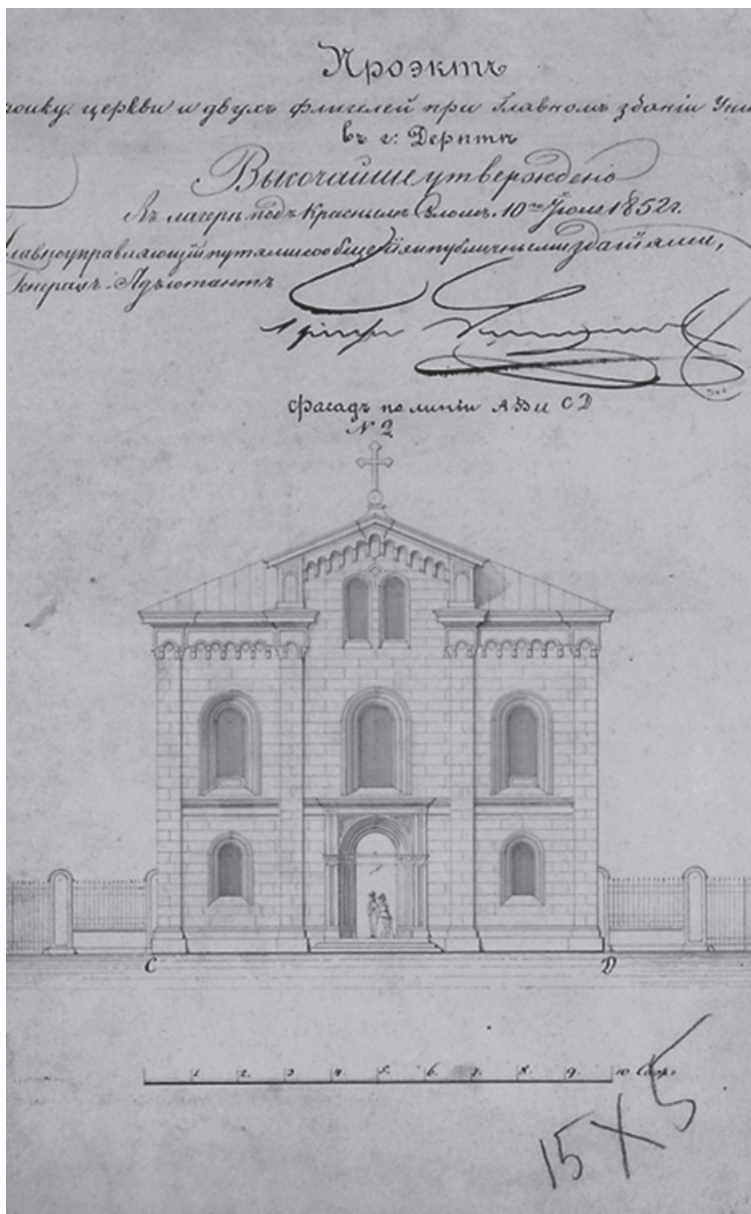 Проэктъ
церкви и двухъ флигелей при Главномъ зданіи
въ г: Дерптѣ
Высочайше утверждено
Въ лагерѣ подъ Краснымъ Селомъ. 10го Іюля 1852 г.
Главноуправляющій путями сообщенія и публичными зданіями,
Генералъ-Адъютантъ
Графъ
фасадъ по линіи АВ и CD
№ 2
C D
1 2. 3 4. 5. 6. 7. 8. 9. 10 Саж.
15 X 5